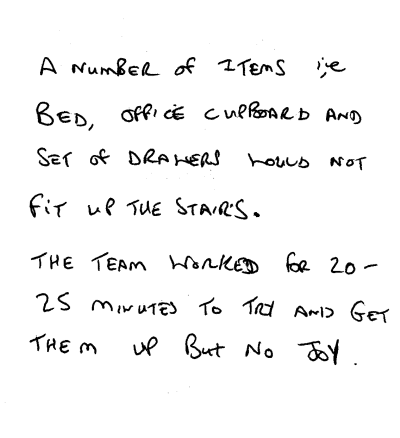 A NUMBER OF ITEMS i;e
BED, OFFICE CUPBOARD AND
SET OF DRAWERS WOULD NOT
FIT UP THE STAIR'S.
THE TEAM WORKED FOR 20-
25 MINUTES TO TRY AND GET
THEM UP BUT NO JOY.